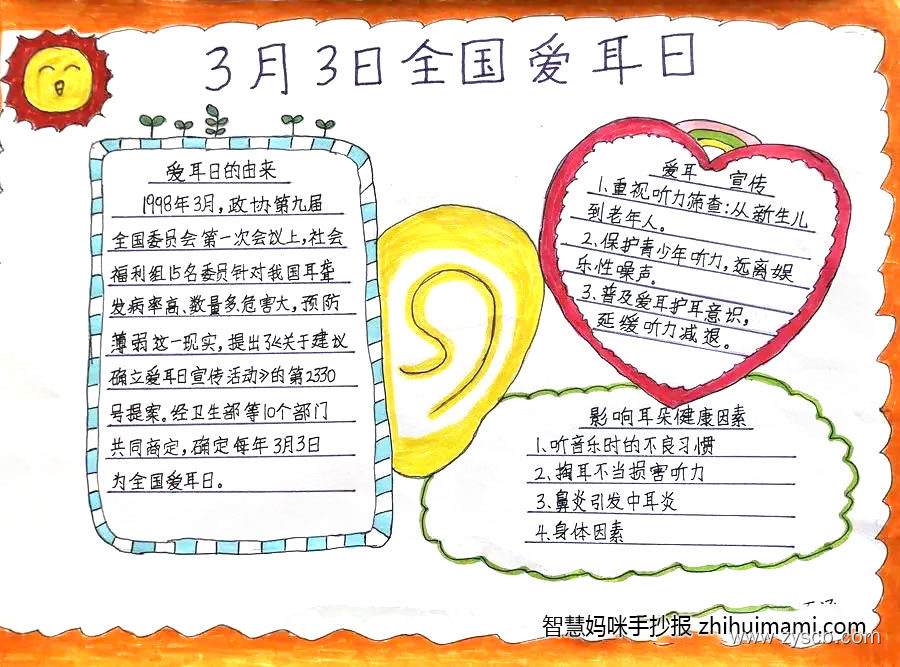 3月3日全国爱耳日
爱耳日的由来
1998年3月,政协第九届
全国委员会第一次会议上,社会
福利组15名委员针对我国耳聋
发病率高、数量多、危害大,预防
薄弱这一现实,提出了《关于建议
确立爱耳日宣传活动》的第2330
号提案。经卫生部等10个部门
共同商定,确定每年3月3日
为全国爱耳日。
爱耳 宣传
1.重视听力筛查:从新生儿
到老年人。
2.保护青少年听力,远离娱
乐性噪声。
3.普及爱耳护耳意识,
延缓听力减退。
影响耳朵健康因素
1、听音乐时的不良习惯
2、掏耳不当损害听力
3、鼻炎引发中耳炎
4.身体因素
智慧妈咪手抄报 zhihuimami.com
www.zyscb.com